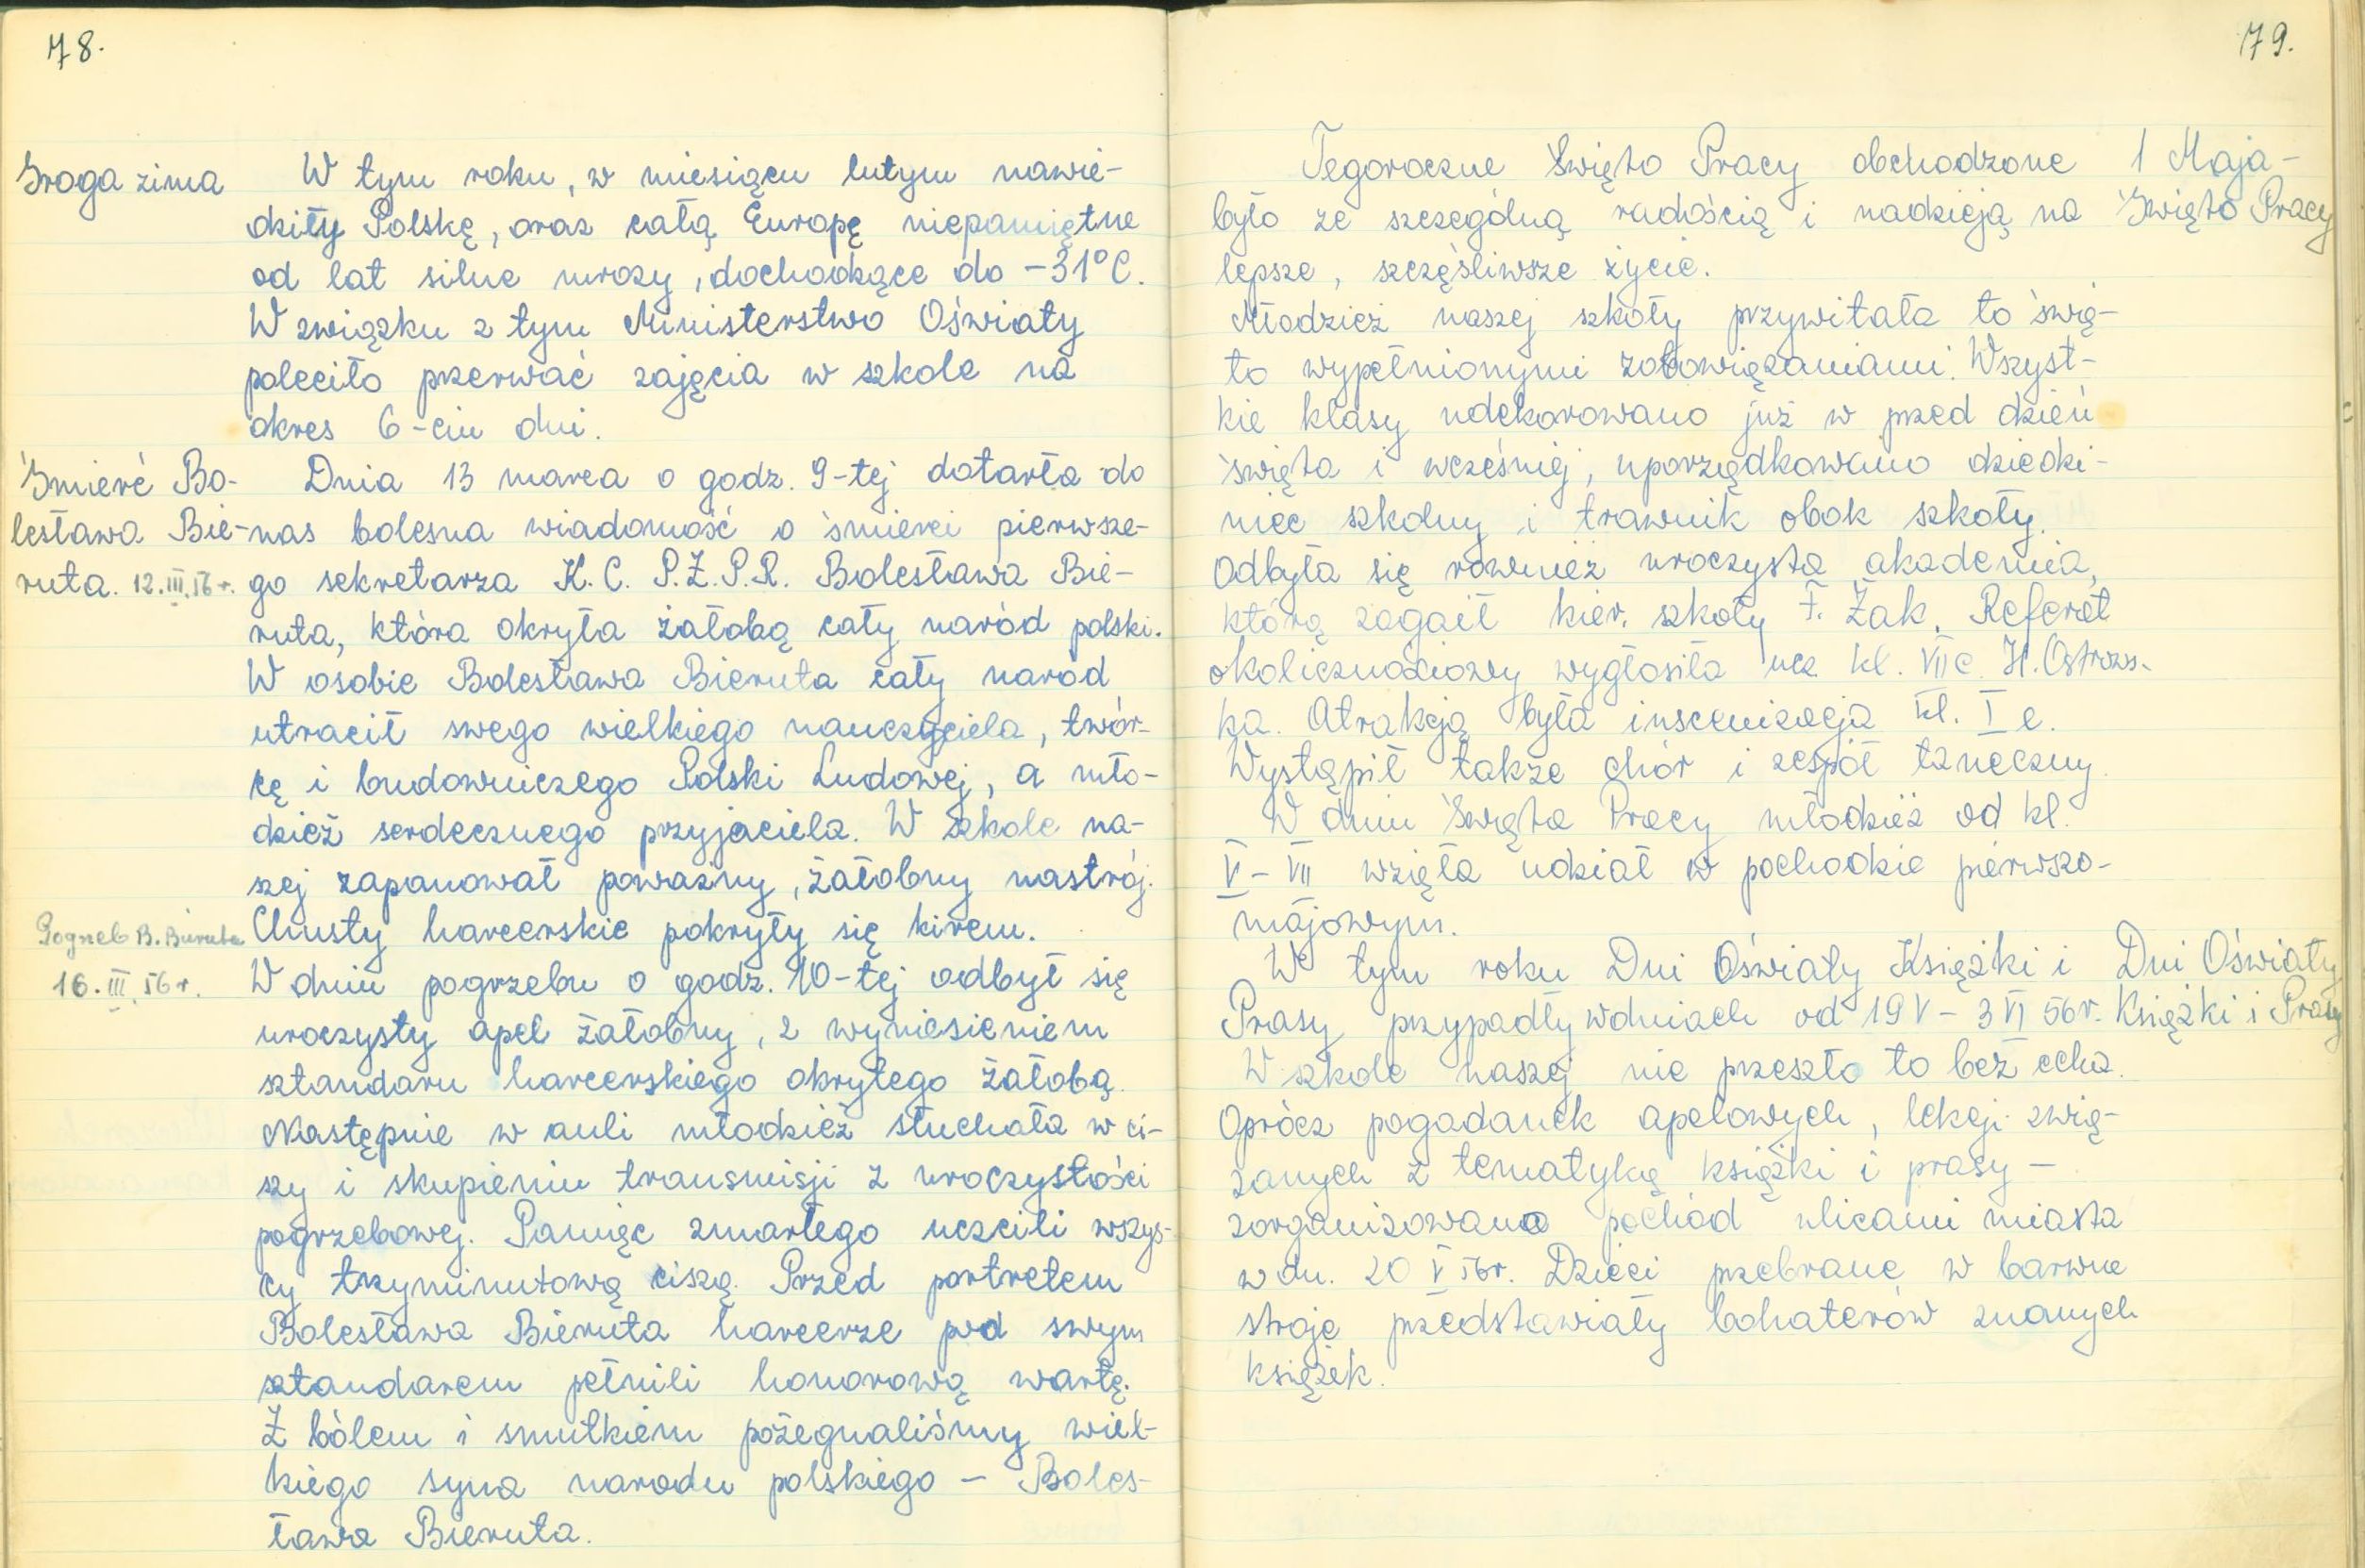 78.
Sroga zima
W tym roku, w miesiącu lutym nawie-
dziły Polskę, oraz całą Europę niepamiętne
od lat silne mrozy, dochodzące do -31°C.
W związku z tym Ministerstwo Oświaty
poleciło przerwać zajęcia w szkole na
okres 6-ciu dni.
Śmierć Bo-
lesława Bie-
ruta. 12.III.56r.
Dnia 13 marca o godz. 9-tej dotarła do
nas bolesna wiadomość o śmierci pierwsze-
go sekretarza K.C. P.Z.P.R. Bolesława Bie-
ruta, która okryła żałobą cały naród polski.
W osobie Bolesława Bieruta cały naród
utracił swego wielkiego nauczyciela, twór-
cę i budowniczego Polski Ludowej, a mło-
dzież serdecznego przyjaciela. W szkole na-
szej zapanował poważny, żałobny nastrój.
Chusty harcerskie pokryły się kirem.
Pogrzeb B. Bieruta
16.III.56r.
W dniu pogrzebu o godz. 10-tej odbył się
uroczysty apel żałobny, z wyniesieniem
sztandaru harcerskiego okrytego żałobą.
Następnie w auli młodzież słuchała w ci-
szy i skupieniu transmisji z uroczystości
pogrzebowej. Pamięć zmarłego uczcili wszys-
cy trzyminutową ciszą. Przed portretem
Bolesława Bieruta harcerze pod swym
sztandarem pełnili honorową wartę.
Z bólem i smutkiem pożegnaliśmy wiel-
kiego syna narodu polskiego – Boles-
ława Bieruta.
79.
Tegoroczne Święto Pracy obchodzone
było ze szczególną radością i nadzieją na
lepsze, szczęśliwsze życie.
1 Maja-
Święto Pracy
Młodzież naszej szkoły przywitała to świę-
to wypełnionymi zobowiązaniami. Wszyst-
kie klasy udekorowano już w przed dzień
święta i wcześniej, uporządkowano dziedzi-
niec szkolny i trawnik obok szkoły.
Odbyła się również uroczysta akademia,
którą zagaił kier. szkoły F. Żak. Referat
okolicznościowy wygłosiła ucz. kl. VII c. H. Ostrows-
ka. Atrakcją była inscenizacja kl. I c.
Wystąpił także chór i zespół taneczny.
W dniu Święta Pracy młodzież od kl.
V – VII wzięła udział w pochodzie pierwszo-
majowym.
W tym roku Dni Oświaty Książki i
Prasy przypadły w dniach od 19 V – 3 VI 56r.
Dni Oświaty
Książki i Prasy
W szkole naszej nie przeszło to bez echa.
Oprócz pogadanek apelowych, lekcji zwią-
zanych z tematyką książki i prasy –
zorganizowano pochód ulicami miasta
w dn. 20 V 56r. Dzieci przebrane w barwne
stroje przedstawiały bohaterów znanych
książek.